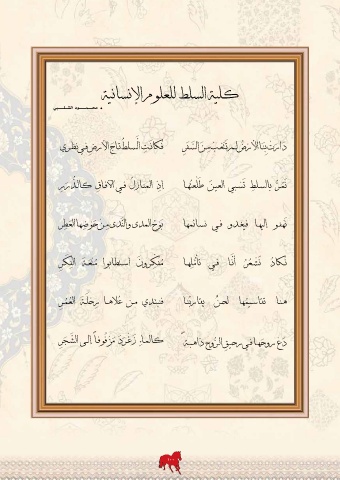 كلية السلط للعلوم الإنسانية
د. محمود الشلبي
دارت بنا الأرض لم نتعب من السفر فكانت السلط تاج الأرض في نظري
تمرّ بالسلط تسبي العين طلعتها إذ المنازل في الآفاق كالدرر
تهفو إليها فيغدو في نسائمها بوح المدى والندى من حوضها العطر
تكاد تشعر أنّا في تأملها مفكرون استطابوا متعة الفكر
هنا تقاسيمها لحن يقاربنا فنبتدي من علاها رحلة العمر
دع روحها في رحيق الروح ذاهبة كالماء زغرد مزفوفاً إلى الشجر